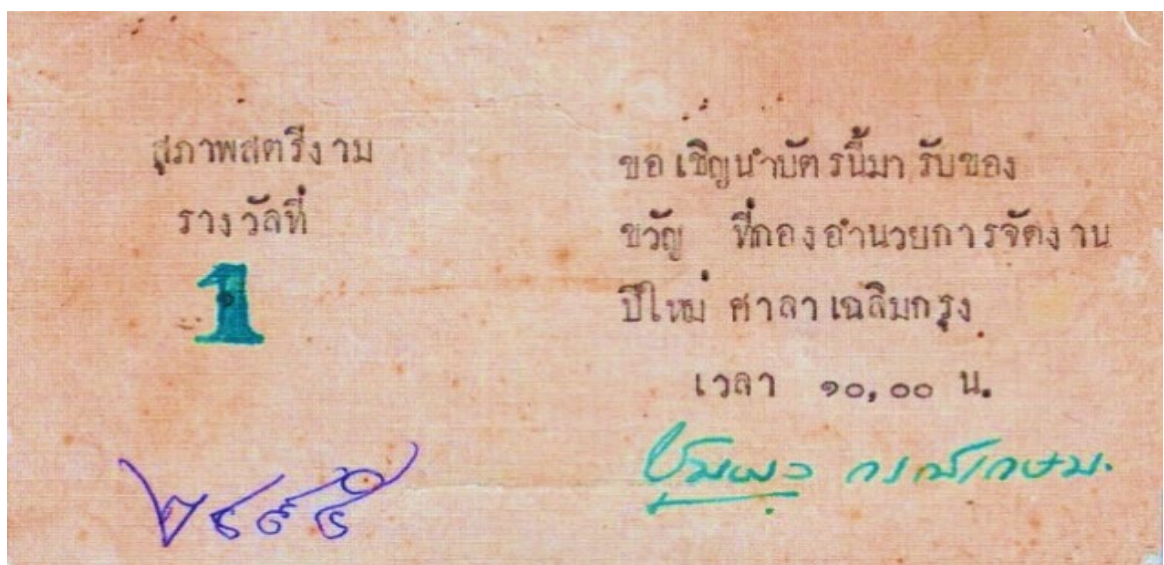 สุภาพสตรีงาม
รางวัลที่
1
ขอเชิญนำบัตรนี้มารับของ
ขวัญ ที่กองอำนวยการจัดงาน
ปีใหม่ ศาลาเฉลิมกรุง
เวลา ๑๐,๐๐ น.